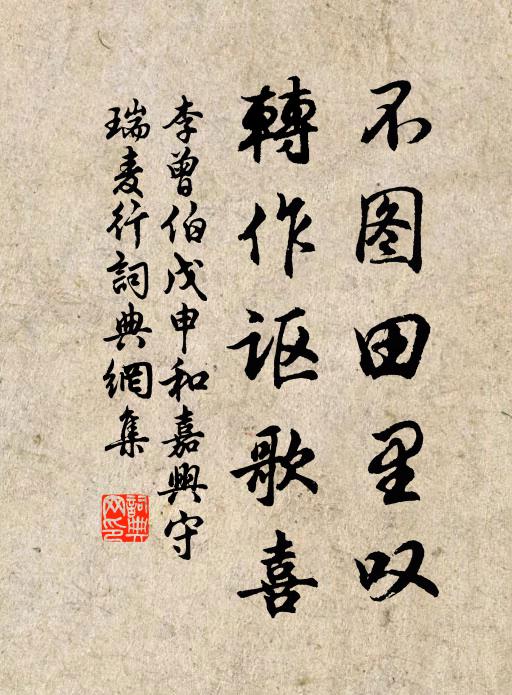 不图田里叹
轉作讴歌喜
李曾伯戊申和嘉興守
瑞麦行詞典網集
詞典网印